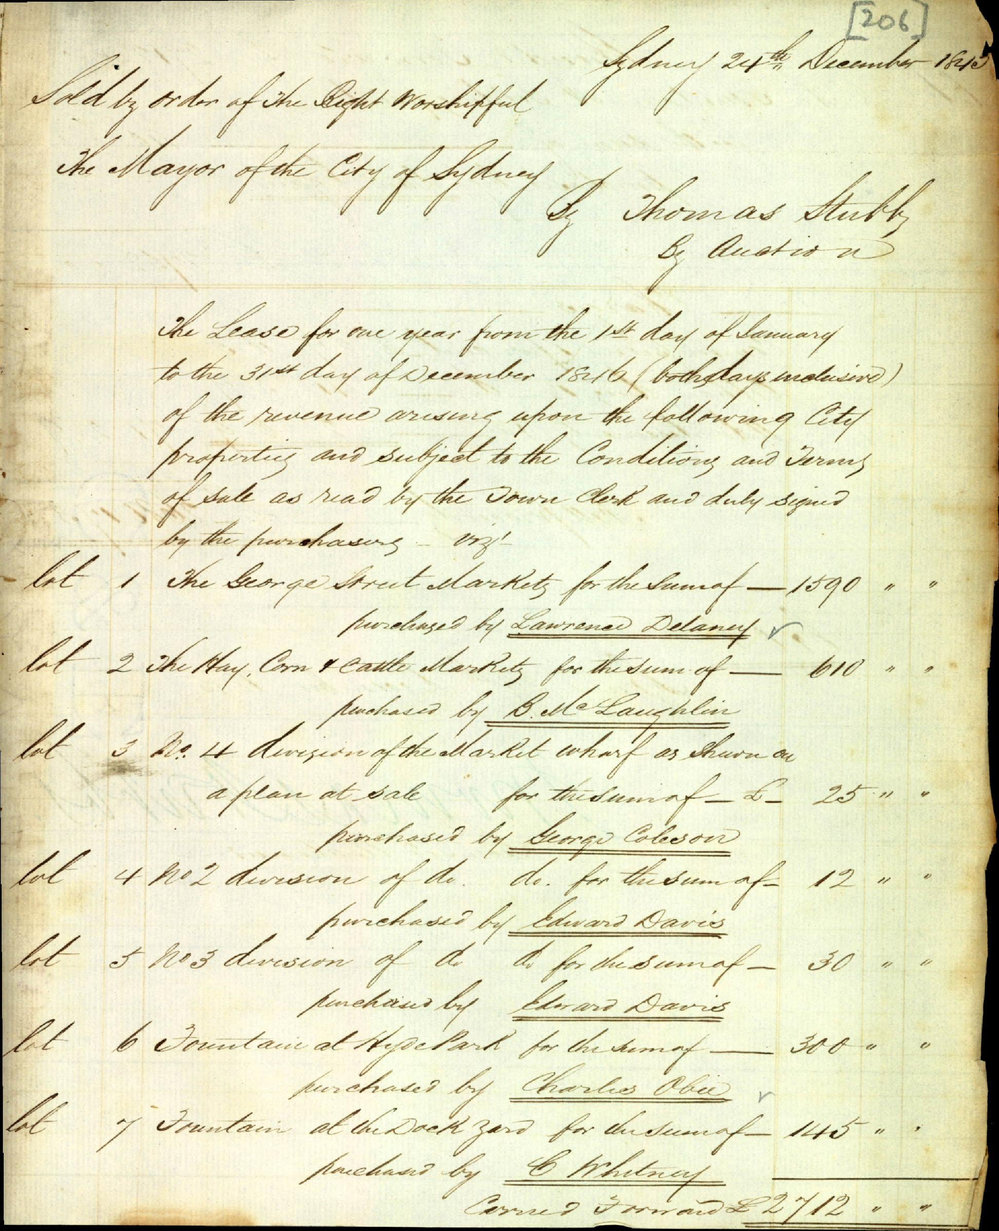 [206]
Sydney 24th December 1845
Sold by order of the Right Worshipful
The Mayor of the City of Sydney
By Thomas Stubbs
By Auction
The Lease for one year from the 1st day of January
to the 31st day of December 1846 (both days inclusive)
of the revenue arising upon the following City
properties and subject to the Conditions and Terms
of sale as read by the Town Clerk and duly signed
by the purchasers viz!
lot 1 The George Street Markets for the sum of — 1590 " "
purchased by Lawrence Delaney ✓
lot 2 The Hay, Corn & Cattle Markets for the sum of — 610 " "
purchased by B. McLaughlin
lot 3 No. 4 division of the Market wharf as shown on
a plan at sale for the sum of — £ — 25 " "
purchased by George Coleson
lot 4 No 2 division of do. do. for the sum of — 12 " "
purchased by Edward Davis
lot 5 No 3 division of do do for the sum of — 30 " "
purchased by Edward Davis
lot 6 Fountain at Hyde Park for the sum of — 300 " "
purchased by Charles Obie ✓
lot 7 Fountain at the Dock Yard for the sum of — 145 " "
purchased by C Whitney
Carried Forward £ 2712 " "